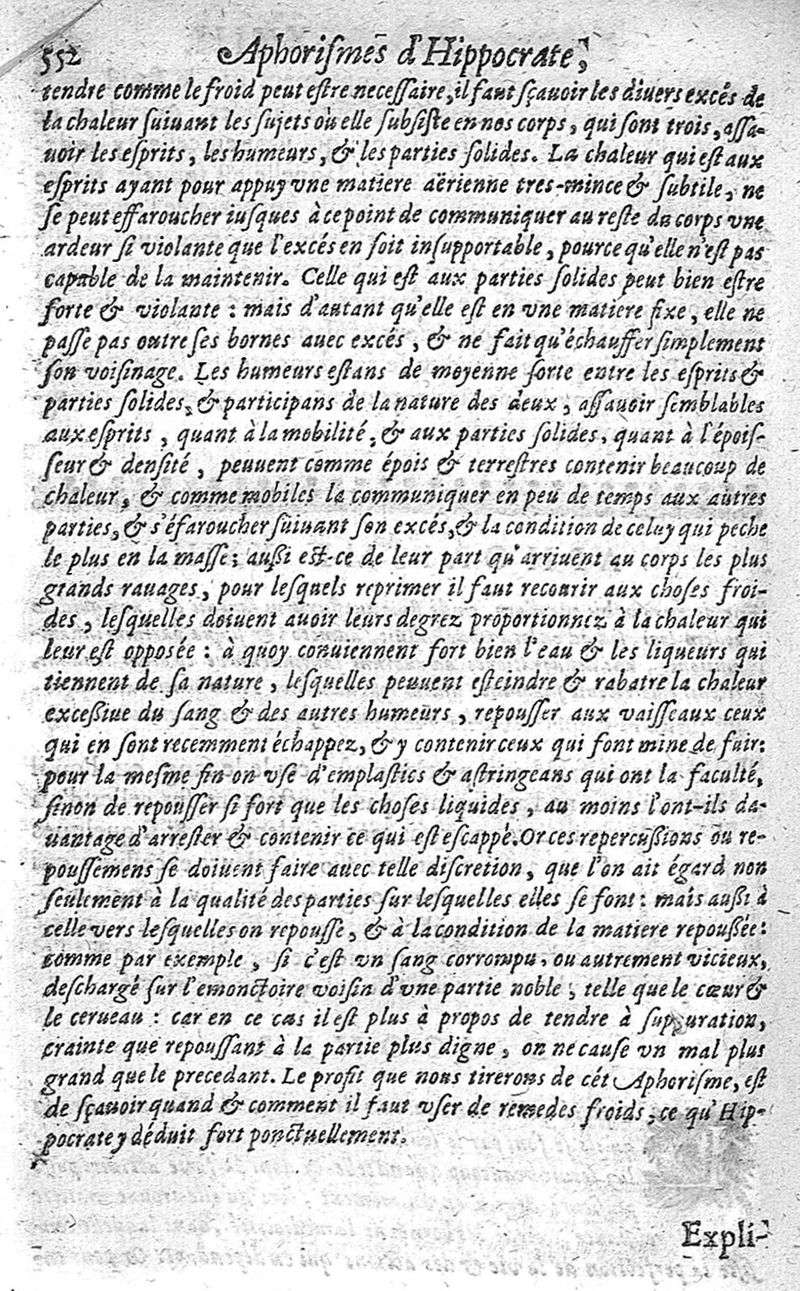 552 Aphoriſmes d'Hippocrate,
tendre comme le froid peut eſtre neceſſaire, il faut ſçauoir les diuers excés de
la chaleur ſuiuant les ſujets où elle ſubſiſte en nos corps, qui ſont trois, aſſa-
uoir les eſprits, les humeurs, & les parties ſolides. La chaleur qui eſt aux
eſprits ayant pour appuy vne matiere aërienne tres-mince & ſubtile, ne
ſe peut effaroucher iuſques à ce point de communiquer au reſte du corps vne
ardeur ſi violante que l'excés en ſoit inſupportable, pource qu'elle n'eſt pas
capable de la maintenir. Celle qui eſt aux parties ſolides peut bien eſtre
forte & violante : mais d'autant qu'elle eſt en vne matiere fixe, elle ne
paſſe pas outre ſes bornes auec excés, & ne fait qu'échauffer ſimplement
ſon voiſinage. Les humeurs eſtans de moyenne ſorte entre les eſprits &
parties ſolides, & participans de la nature des deux, aſſauoir ſemblables
aux eſprits, quant à la mobilité, & aux parties ſolides, quant à l'époiſ-
ſeur & denſité, peuuent comme épois & terreſtres contenir beaucoup de
chaleur, & comme mobiles la communiquer en peu de temps aux autres
parties, & s'éfaroucher ſuiuant ſon excés, & la condition de celuy qui peche
le plus en la maſſe; auſſi eſt-ce de leur part qu'arriuent au corps les plus
grands rauages, pour leſquels reprimer il faut recourir aux choſes froi-
des, leſquelles doiuent auoir leurs degrez proportionnez à la chaleur qui
leur eſt opposée : à quoy conuiennent fort bien l'eau & les liqueurs qui
tiennent de ſa nature, leſquelles peuuent eſteindre & rabatre la chaleur
exceſſiue du ſang & des autres humeurs, repouſſer aux vaiſſeaux ceux
qui en ſont recemment échappez, & y contenir ceux qui font mine de fuir:
pour la meſme fin on vſe d'emplaſtics & aſtringeans qui ont la faculté,
ſinon de repouſſer ſi fort que les choſes liquides, au moins l'ont-ils da-
uantage d'arreſter & contenir ce qui eſt eſcappé. Or ces repercuſſions ou re-
pouſſemens ſe doiuent faire auec telle diſcretion, que l'on ait égard non
ſeulement à la qualité des parties ſur leſquelles elles ſe font : mais auſſi à
celle vers leſquelles on repouſſe, & à la condition de la matiere repouſſée:
comme par exemple, ſi c'eſt vn ſang corrompu, ou autrement vicieux,
deſchargé ſur l'emonctoire voiſin d'vne partie noble, telle que le cœur &
le cerueau : car en ce cas il eſt plus à propos de tendre à ſuppuration,
crainte que repouſſant à la partie plus digne, on ne cauſe vn mal plus
grand que le precedant. Le profit que nous tirerons de cét Aphoriſme, eſt
de ſçauoir quand & comment il faut vſer de remedes froids, ce qu'Hip-
pocrate y déduit fort ponctuellement.
Expli-